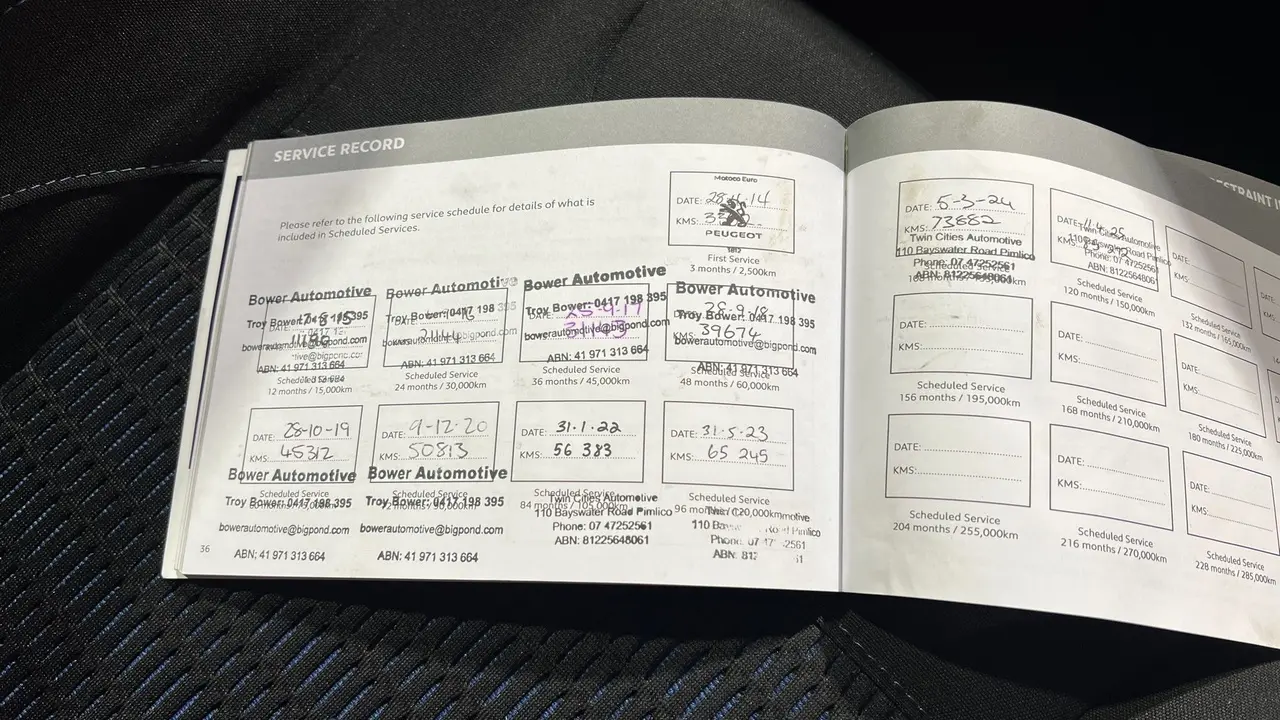 SERVICE RECORD
Please refer to the following service schedule for details of what is
included in Scheduled Services.
Motoco Euro
DATE: 14
KMS:
PEUGEOT
First Service
3 months / 2,500km
Bower Automotive
Troy Bower: 0417 198 395
bowerautomotive@bigpond.com
ABN: 41 971 313 664
Scheduled Service
12 months / 15,000km
Bower Automotive
Troy Bower: 0417 198 395
ABN: 41 971 313 664
Scheduled Service
24 months / 30,000km
Bower Automotive
Troy Bower: 0417 198 395
bowerautomotive@bigpond.com
ABN: 41 971 313 664
Scheduled Service
36 months / 45,000km
Bower Automotive
Troy Bower: 0417 198 395
KMS: 39674
bowerautomotive@bigpond.com
ABN: 41 971 313 664
Scheduled Service
48 months / 60,000km
DATE: 28-10-19
KMS: 45312
Bower Automotive
Scheduled Service
Troy Bower: 0417 198 395
bowerautomotive@bigpond.com
ABN: 41 971 313 664
DATE: 9-12-20
KMS: 50813
Bower Automotive
Scheduled Service
Troy Bower: 0417 198 395
bowerautomotive@bigpond.com
ABN: 41 971 313 664
DATE: 31.1.22
KMS: 56 383
Scheduled Service
Twin Cities Automotive
84 months / 105,000km
110 Bayswater Road Pimlico
Phone: 07 47252561
ABN: 81225648061
DATE: 31.5.23
KMS: 65 245
Scheduled Service
96 months / 120,000km
110
Phone: 07
ABN:
36
RESTRAINT
DATE: 5-3-24
KMS: 73682
Twin Cities Automotive
110 Bayswater Road Pimlico
Phone: 07 47252561
Scheduled Service
ABN: 81225648061
DATE:
KMS:
Twin Cities Automotive
110 Bayswater Road Pimlico
Phone: 07 47252561
ABN: 8122564806
Scheduled Service
120 months / 150,000km
DATE:
KMS:
Scheduled Service
132 months / 165,000km
DATE:
KMS:
Scheduled Service
156 months / 195,000km
DATE:
KMS:
Scheduled Service
168 months / 210,000km
DATE:
KMS:
Scheduled Service
180 months / 225,000km
DATE:
KMS:
Scheduled Service
204 months / 255,000km
DATE:
KMS:
Scheduled Service
216 months / 270,000km
DATE:
KMS:
Scheduled Service
228 months / 285,000km